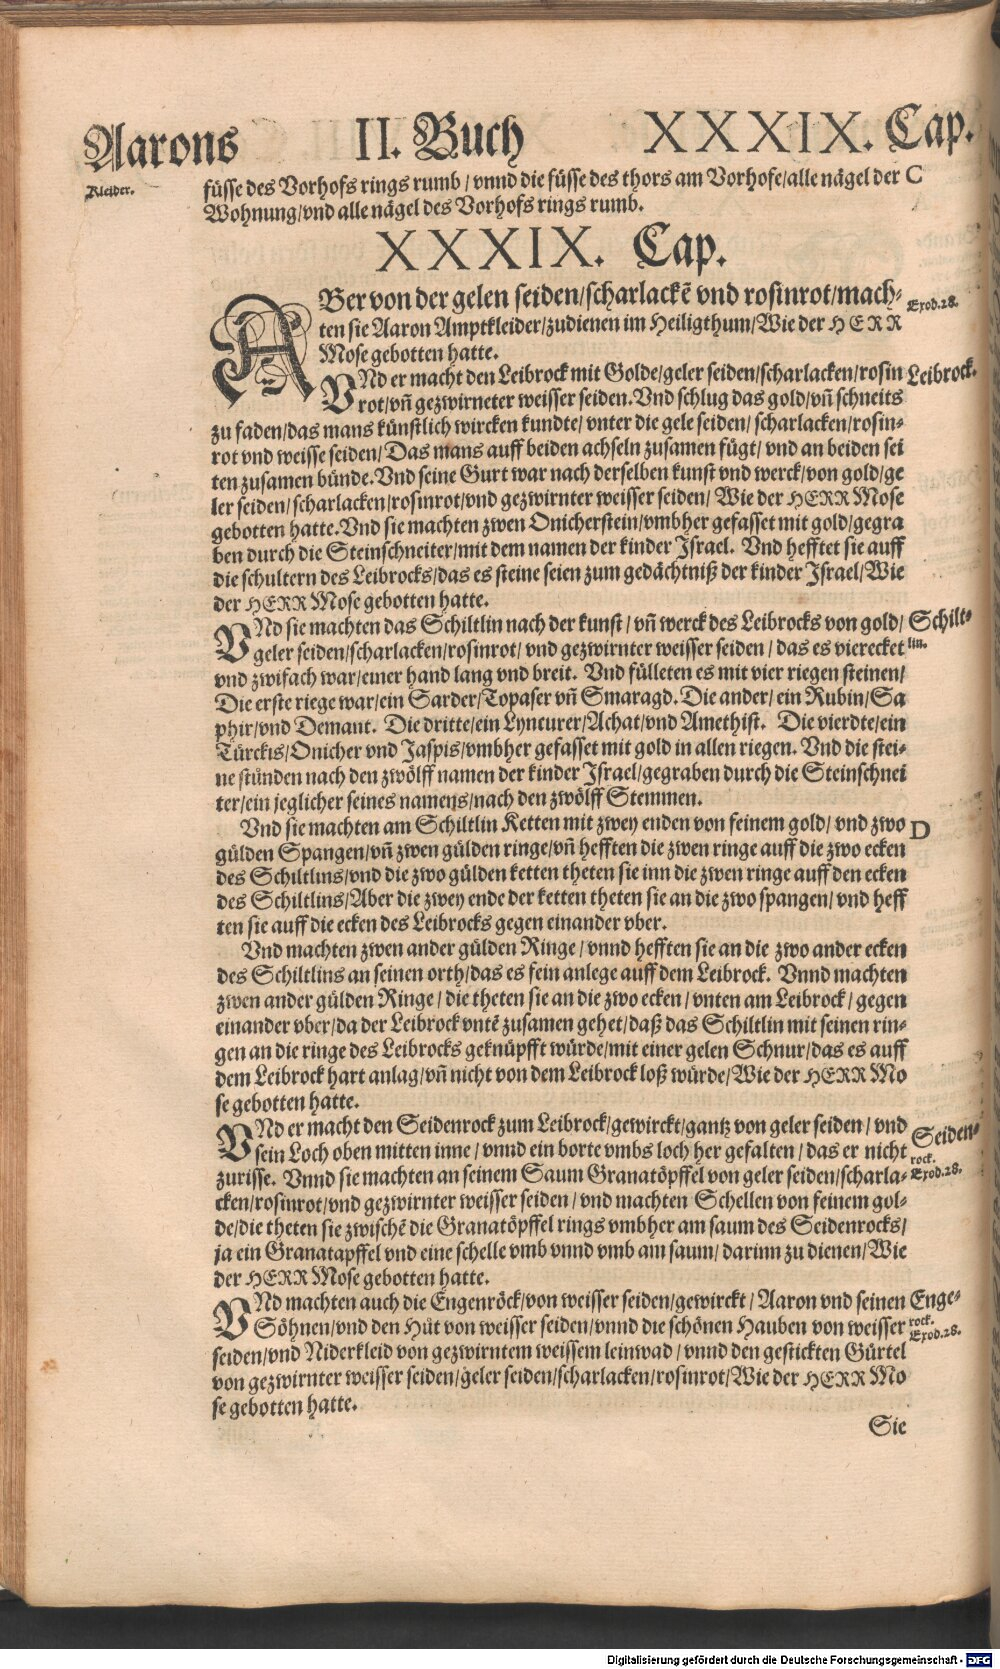 Aarons II. Buch XXXIX. Cap.
Kleider.
füsse des Vorhofs rings rumb / vnnd die füsse des thors am Vorhofe/alle nägel der C
Wohnung/vnd alle nägel des Vorhofs rings rumb.
XXXIX. Cap.
ABer von der gelen seiden/scharlackē vnd rosinrot/mach- Exod.28.
ten sie Aaron Amptkleider/zudienen im Heiligthum/Wie der HERR
Mose gebotten hatte.
VNd er macht den Leibrock mit Golde/geler seiden/scharlacken/rosin Leibrock.
rot/vñ gezwirneter weisser seiden. Vnd schlug das gold/vñ schneits
zu faden/das mans künstlich wircken kundte/ vnter die gele seiden/ scharlacken/rosin-
rot vnd weisse seiden/ Das mans auff beiden achseln zusamen fügt/ vnd an beiden sei
ten zusamen bünde. Vnd seine Gurt war nach derselben kunst vnd werck/von gold/ge
ler seiden/scharlacken/rosinrot/vnd gezwirnter weisser seiden/ Wie der HERR Mose
gebotten hatte. Vnd sie machten zwen Onicherstein/vmbher gefasset mit gold/gegra
ben durch die Steinschneiter/mit dem namen der kinder Israel. Vnd hefftet sie auff
die schultern des Leibrocks/das es steine seien zum gedächtniß der kinder Israel/Wie
der HERR Mose gebotten hatte.
VNd sie machten das Schiltlin nach der kunst / vñ werck des Leibrocks von gold/ Schilt-
geler seiden/scharlacken/rosinrot/ vnd gezwirnter weisser seiden / das es vierecket lin.
vnd zwifach war/einer hand lang vnd breit. Vnd fülleten es mit vier riegen steinen/
Die erste riege war/ein Sarder/Topaser vñ Smaragd. Die ander/ ein Rubin/Sa
phir/vnd Demant. Die dritte/ein Lyncurer/Achat/vnd Amethist. Die vierdte/ein
Türckis/Onicher vnd Jaspis/vmbher gefasset mit gold in allen riegen. Vnd die stei-
ne stünden nach den zwölff namen der kinder Israel/gegraben durch die Steinschnei
ter/ein jeglicher seines namens/nach den zwölff Stemmen.
Vnd sie machten am Schiltlin Ketten mit zwey enden von feinem gold/ vnd zwo D
gülden Spangen/vñ zwen gülden ringe/vñ hefften die zwen ringe auff die zwo ecken
des Schiltlins/vnd die zwo gülden ketten theten sie inn die zwen ringe auff den ecken
des Schiltlins/Aber die zwey ende der ketten theten sie an die zwo spangen/ vnd heff
ten sie auff die ecken des Leibrocks gegen einander vber.
Vnd machten zwen ander gülden Ringe / vnnd hefften sie an die zwo ander ecken
des Schiltlins an seinen orth/das es fein anlege auff dem Leibrock. Vnnd machten
zwen ander gülden Ringe / die theten sie an die zwo ecken / vnten am Leibrock / gegen
einander vber/da der Leibrock vntē zusamen gehet/daß das Schiltlin mit seinen rin-
gen an die ringe des Leibrocks geknüpfft würde/mit einer gelen Schnur/das es auff
dem Leibrock hart anlag/vñ nicht von dem Leibrock loß würde/Wie der HERR Mo
se gebotten hatte.
VNd er macht den Seidenrock zum Leibrock/gewirckt/gantz von geler seiden / vnd Seiden-
sein Loch oben mitten inne / vnnd ein borte vmbs loch her gefalten / das er nicht rock.
zurisse. Vnnd sie machten an seinem Saum Granatöpffel von geler seiden/scharla- Exod.28.
cken/rosinrot/vnd gezwirnter weisser seiden / vnd machten Schellen von feinem gol-
de/die theten sie zwischē die Granatöpffel rings vmbher am saum des Seidenrocks/
ja ein Granatapffel vnd eine schelle vmb vnnd vmb am saum/ darinn zu dienen/Wie
der HERR Mose gebotten hatte.
VNd machten auch die Engenröck/von weisser seiden/gewirckt / Aaron vnd seinen Enge-
Söhnen/vnd den Hůt von weisser seiden/vnnd die schönen Hauben von weisser rock.
Exod.28.
seiden/vnd Niderkleid von gezwirntem weissem leinwad / vnnd den gestickten Gürtel
von gezwirnter weisser seiden/geler seiden/scharlacken/rosinrot/Wie der HERR Mo
se gebotten hatte.
Sie
Digitalisierung gefördert durch die Deutsche Forschungsgemeinschaft - DFG